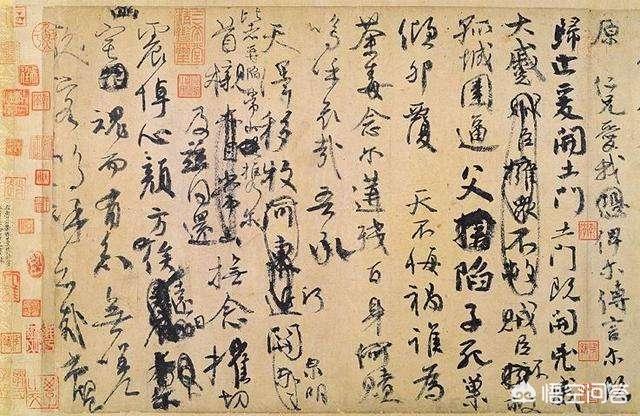 原仁兄愛我俾爾傳言爾既
歸止爰開土門土門既開凶威
大蹙賊臣擁衆不救賊臣不救
孤城圍逼父擒陷子死巢
傾卵覆天不悔禍誰為
荼毒念爾遘殘百身何贖
嗚呼哀哉吾承
天澤移牧河東近河關
泉明
比者再陷常山攜爾
首櫬亦自常山及茲同還撫念摧切
震悼心顏方俟遠日
宅魂而有知無嗟
久客嗚呼哀哉尚饗
悟空问答